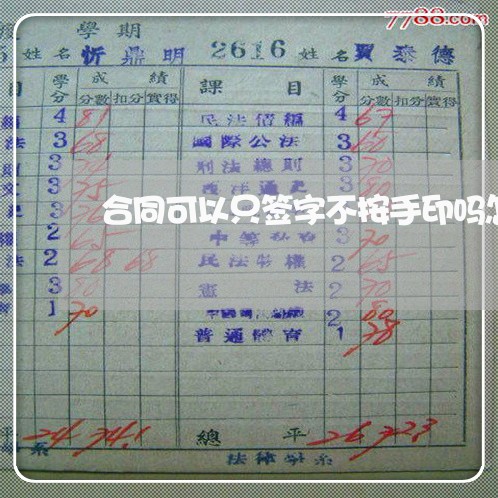 7788.com
學期
姓名 忻鼎明 2616 姓名 賈泰德
目 學分 成績 課目 學分 成績
分數 扣分 實得 分數 扣分 實得
4 81 民法債編 4 67
法 3 68 國際公法 3 60
3 刑法總則 3 70
3 75 3 80
合同可以只签字不按手印吗怎
2 65 3 70
法 2 68 68 民法物權 2 65
3 80 憲法 2 70
1 70 2 80
普通體育 1 78
平 24 74.1 總平 26 72.3
系 法律學系